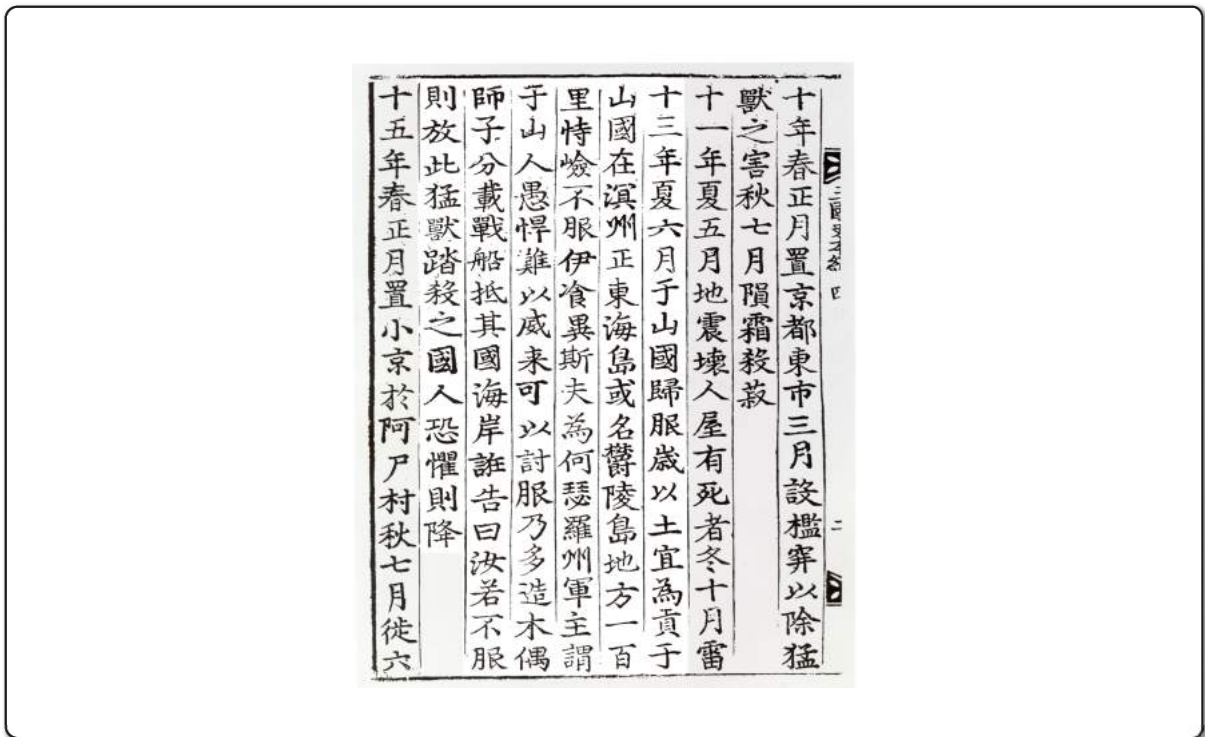 三國史本紀四 二
十年春正月置京都東市三月設檻穽以除猛
獸之害秋七月隕霜殺菽
十一年夏五月地震壞人屋有死者冬十月雷
十三年夏六月于山國歸服歲以土宜為貢于
山國在溟州正東海島或名欝陵島地方一百
里恃嶮不服伊飡異斯夫為何瑟羅州軍主謂
于山人愚悍難以威来可以討服乃多造木偶
師子分載戰船抵其國海岸誑告曰汝若不服
則放此猛獸踏殺之國人恐懼則降
十五年春正月置小京於阿尸村秋七月徙六